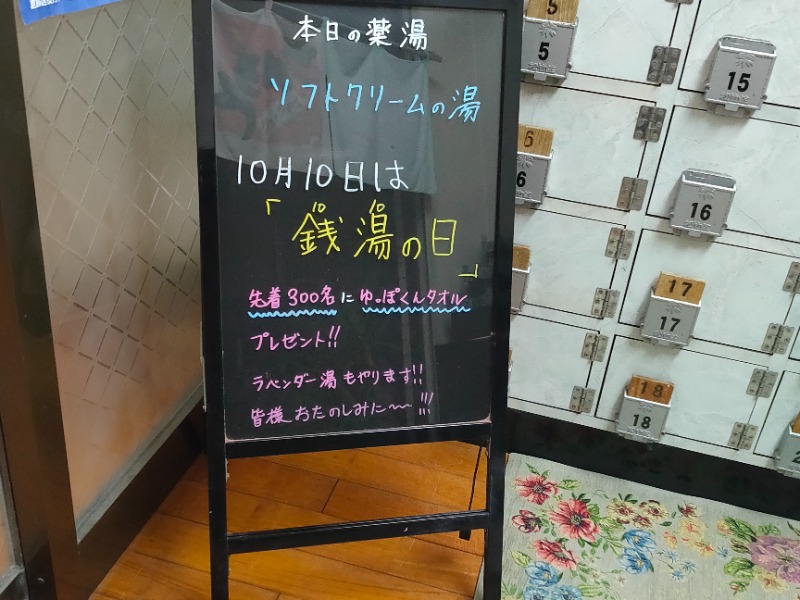 本日の薬湯
ソフトクリームの湯
10月10日は
「銭湯の日」
10 10
先着300名にゆっぽくんタオル
プレゼント!!
ラベンダー湯もやります!!
皆様おたのしみに〜!!!
5
5
6
6
15
16
17
17
18
18